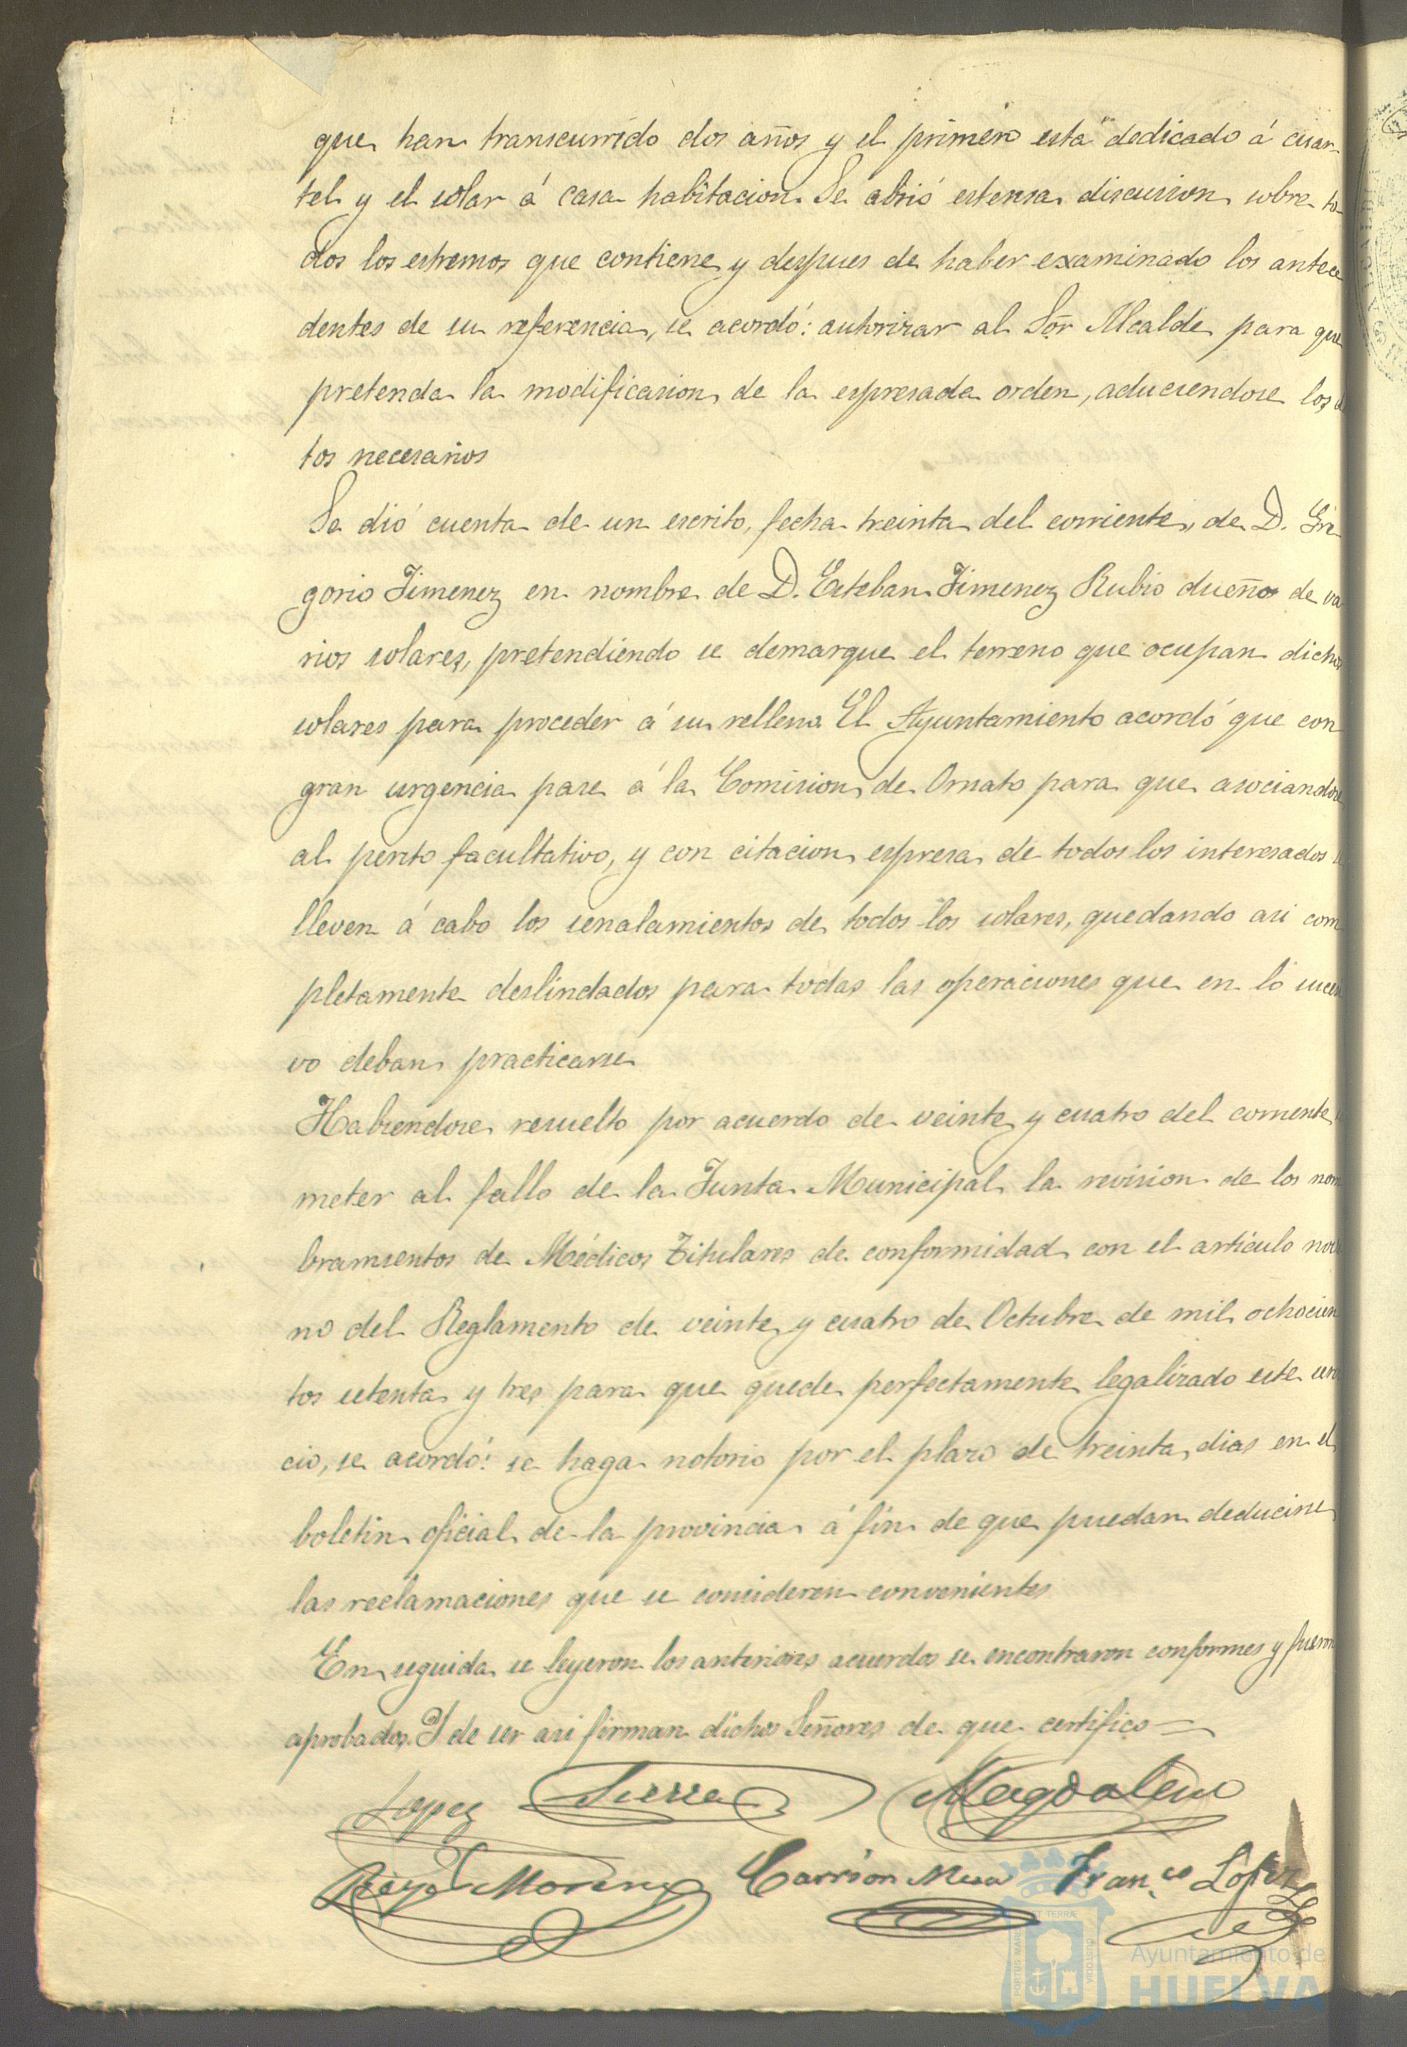 que han transcurrido dos años y el primero está dedicado á cuar-
tel y el solar á casa habitacion. Se abrió estensa discusion sobre to-
dos los estremos que contiene y despues de haber examinado los antece
dentes de su referencia, se acordó: autorizar al Sor Alcalde para que
pretenda la modificacion de la espresada orden, aduciendose los
tos necesarios
Se dió cuenta de un escrito, fecha treinta del corriente, de D. Gre
gorio Jimenez en nombre de D. Esteban Jimenez Rubio dueños de va
rios solares, pretendiendo se demarque el terreno que ocupan dichos
solares para proceder á su relleno. El Ayuntamiento acordó que con
gran urgencia pase á la Comision de Ornato para que asociandose
al perito facultativo, y con citacion espresa de todos los interesados
lleven á cabo los senalamientos de todos los solares, quedando asi com
pletamente deslindados para todas las operaciones que en lo sucesi
vo deban practicarse
Habiendose resuelto por acuerdo de veinte y cuatro del corriente
meter al fallo de la Junta Municipal la revision de los nom
bramientos de Médicos Titulares de conformidad con el artículo nove
no del Reglamento de veinte y cuatro de Octubre de mil ochocien
tos setenta y tres para que quede perfectamente legalizado este servi
cio, se acordó: se haga notorio por el plazo de treinta dias en el
boletin oficial de la provincia á fin de que puedan deducirse
las reclamaciones que se consideren convenientes
En seguida se leyeron los anteriores acuerdos se encontraron conformes y fueron
aprobados. Y de ser asi firman dichos Señores de que certifico=
Lopez Sierra Magdaleno
Moreno Carrion Mesa Fran.co López
Ayuntamiento de
HUELVA